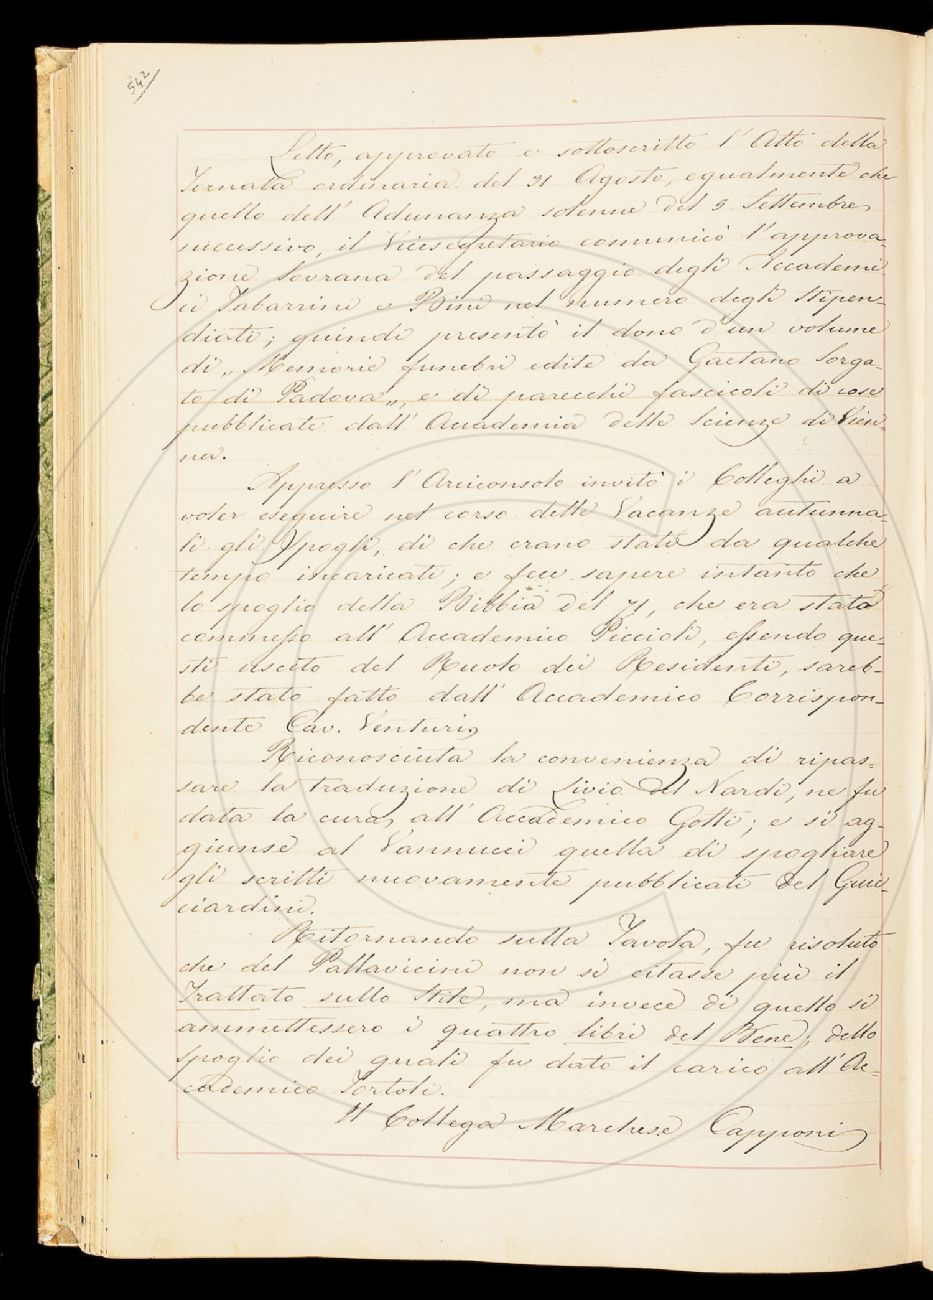 542
Letto, approvato e sottoscritto l'Atto della
Tornata ordinaria del 31 Agosto, egualmente che
quello dell'Adunanza solenne del 9 Settembre
successivo, il Vicesegretario comunicò l'approva-
zione Sovrana del passaggio degli Accademi
ci Tabarrini e Bini nel numero degli Stipen-
diati; quindi presentò il dono d'un volume
di „Memorie funebri edite da Gaetano Sorga-
to di Padova„, e di parecchi fascicoli di cose
pubblicate dall'Accademia delle Scienze di Vien-
na.
Appresso l'Arciconsolo invitò i Colleghi a
voler eseguire nel corso delle Vacanze autunna-
li gli Spogli, di che erano stati da qualche
tempo incaricati; e fece sapere intanto che
lo spoglio della Bibbia del 71, che era stato
commesso all'Accademico Piccioli, essendo que-
sti uscito del Ruolo dei Residenti, sareb-
be stato fatto dall'Accademico Corrispon-
dente Cav. Venturi.
Riconosciuta la convenienza di ripas-
sare la traduzione di Livio del Nardi, ne fu
data la cura all'Accademico Gotti; e si ag-
giunse al Vannucci quella di spogliare
gli scritti nuovamente pubblicati del Guic-
ciardini.
Ritornando sulla Tavola, fu risoluto
che del Pallavicini non si citasse più il
Trattato sullo Stile, ma invece di quello si
ammettessero i quattro libri del Bene; dello
spoglio dei quali fu dato il carico all'Ac-
cademico Tortoli.
Il Collega Marchese Capponi